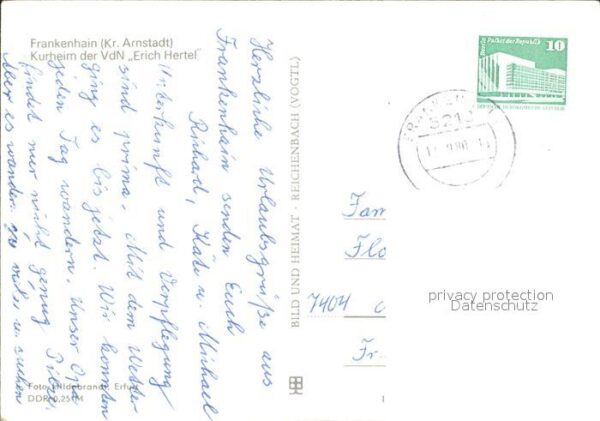 Frankenhain (Kr. Arnstadt)
Kurheim der VdN „Erich Hertel"
Herzliche Urlaubsgrüße aus
Frankenhain senden Euch
Richard, Käte u. Michael
Unterkunft und Verpflegung
sind prima. Mit dem Wetter
ging es bis jetzt. Wir konnten
jeden Tag wandern. Unser Opa
findet nur nicht genug Pilze.
Aber es wandern zu viele u. suchen
Foto: Hildebrandt, Erfurt
DDR 0,25 M
BILD UND HEIMAT · REICHENBACH (VOGTL)
Berlin Palast der Republik
10
5213
Fam
Flo
7404
Fr.
privacy protection
Datenschutz